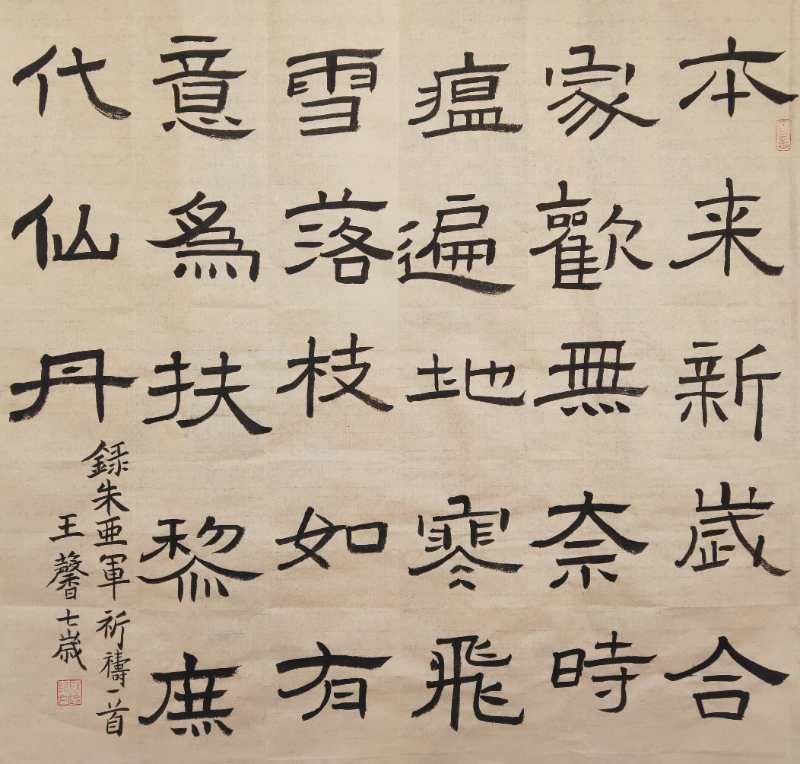 本来新歲合
家歡無奈時
瘟遍地寒飛
雪落枝如有
意爲扶黎庶
代仙丹
録朱亜軍祈禱一首
王馨七歲